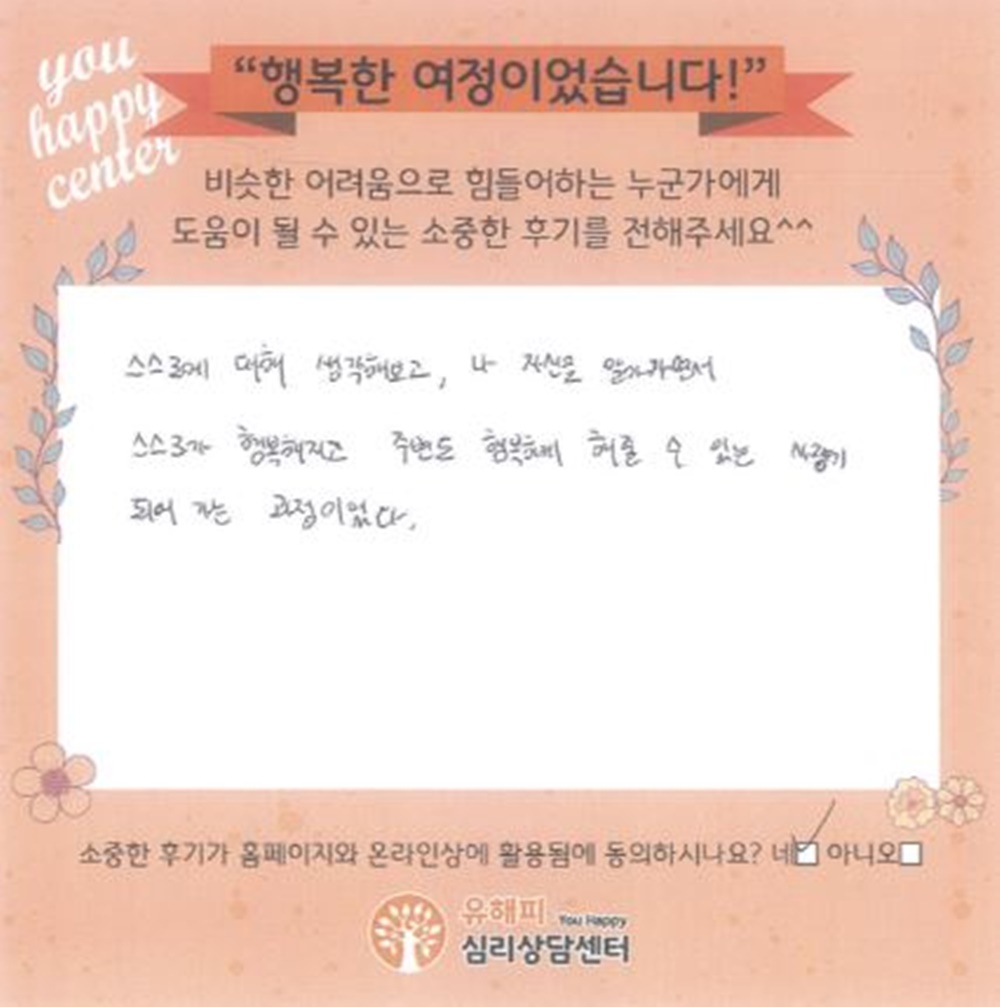 you
happy
center
“행복한 여정이었습니다!”
비슷한 어려움으로 힘들어하는 누군가에게
도움이 될 수 있는 소중한 후기를 전해주세요^^
스스로에 대해 생각해보고, 나 자신을 알아가면서
스스로가 행복해지고 주변도 행복하게 해줄 수 있는 사람이
되어 가는 과정이었다.
소중한 후기가 홈페이지와 온라인상에 활용됨에 동의하시나요? 네 아니오
유해피 You Happy
심리상담센터